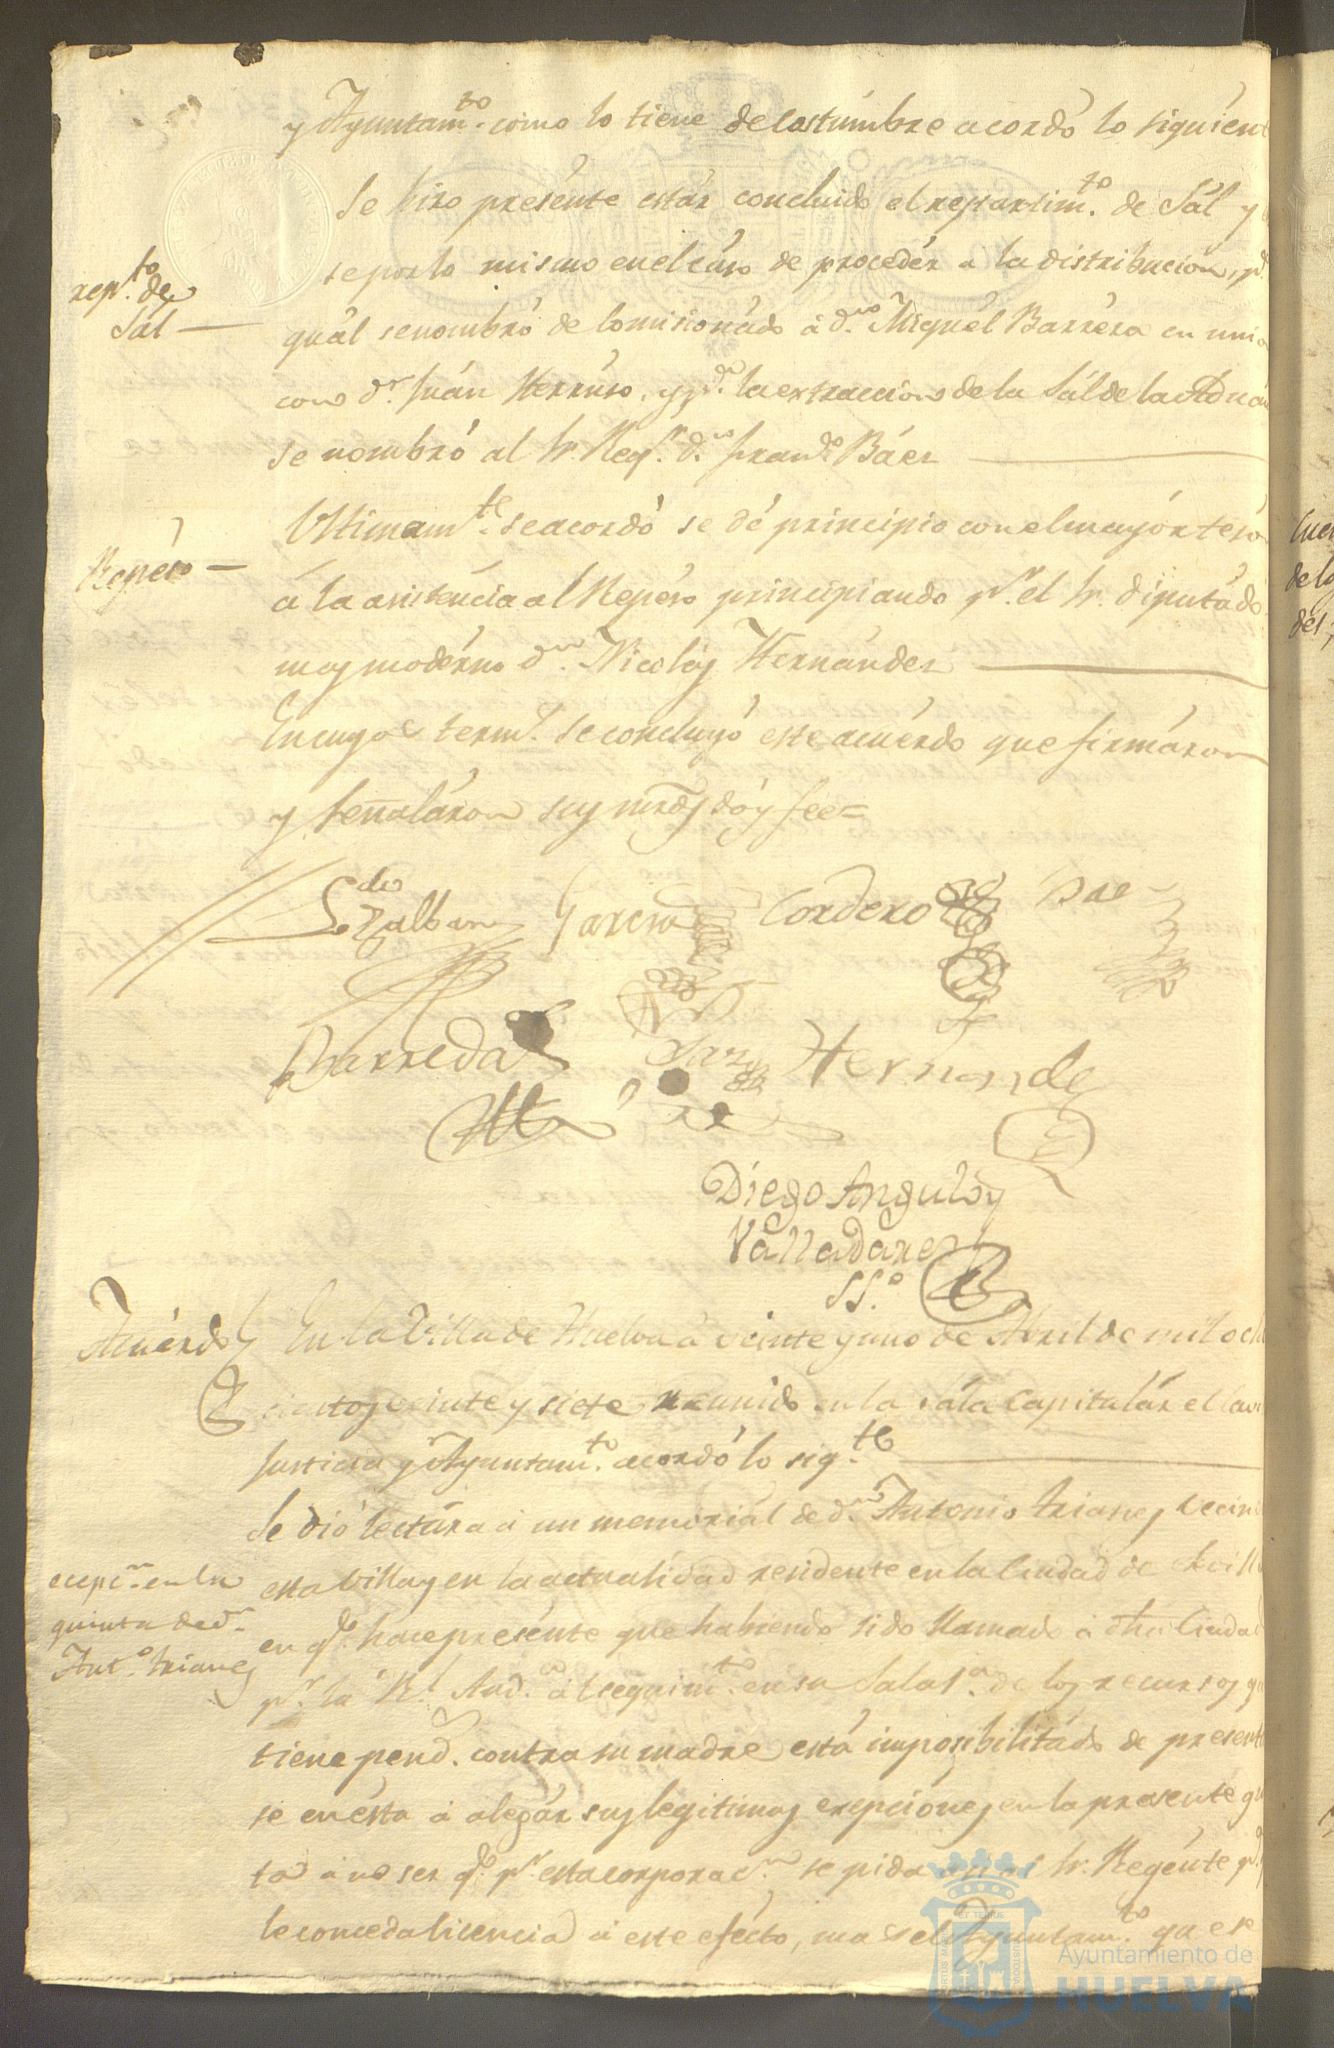 y Ayuntam.to como lo tiene de costúmbre acordó lo siguient
Se hizo presénte estár concluido el repartim.to de Sál y
rep.to de
Sál
se por lo mismo en el cáso de procedér a la distribucion, p.a
quál se nombró de Comisionádo á d.n Miguél Barréra en unio
con d.n Juán Herrúso, y p.a la extraccion de la Sál de la Aduán
se nombró al Sr. Reg.r d.n Fran.co Báez
Repéso
Ultimam.te se acordó se dé principio con el mayór tesón
á la asisténcia al Repéso principiando p.r el Sr. diputádo
mas modérno d.n Nicolás Hernández
En cuyos term.s se concluyó este acuérdo que firmáron
y señaláron sus mrds doy fee=
Ldo Garcia Cordero Bae
Barreda Hernandez
Diego Angulo y
Valladares
SS.o
Acuérdo En la Villa de Huelva á veinte y uno de Abril de mil och
cientos veinte y siete reunido en la sála Capitulár el
Justicia y Ayuntam.to acordó lo sig.te
Se dió lectúra á un memoriál de d.n Antonio Trianes Vecin
ecepc.n en la
quinta de d.n
Ant.o Trianes
esta Villa y en la actualidad residente en la Ciudad de Sevill
en q.e hace presénte que habiendo sido llamado á dha Ciudad
p.r la R.l Aud.a al seguim.to en su Sala 1.a de los recursos q
tiene pend. contra su madre está imposibilitádo de present
se en ésta á alegár sus legitimas exepciónes en la presente qu
ta á no ser q.e p.r esta corporac.n se pida Sr. Regénte p.a
le conceda licencia á este efécto, el Ayuntam.to
Ayuntamiento de
HUELVA